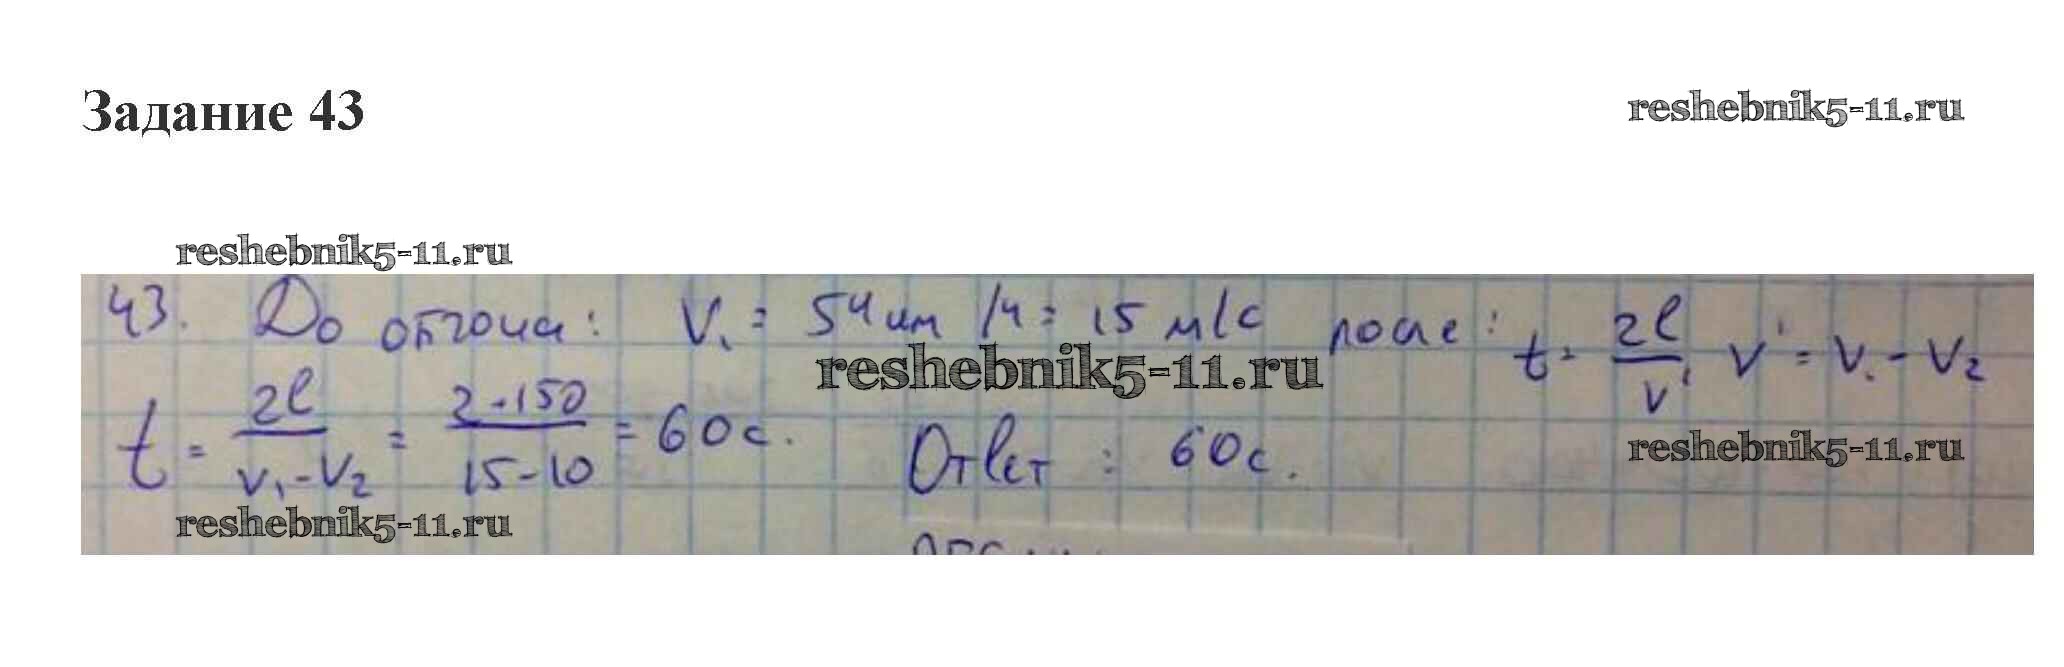 Задание 43
reshebnik5-11.ru
reshebnik5-11.ru
43. До обгона: V₁ = 54 км/ч = 15 м/с после: t = 2l/v' v' = v₁ - v₂
reshebnik5-11.ru
t = 2l/(v₁-v₂) = 2·150/(15-10) = 60 с. Ответ: 60 с.
reshebnik5-11.ru
reshebnik5-11.ru